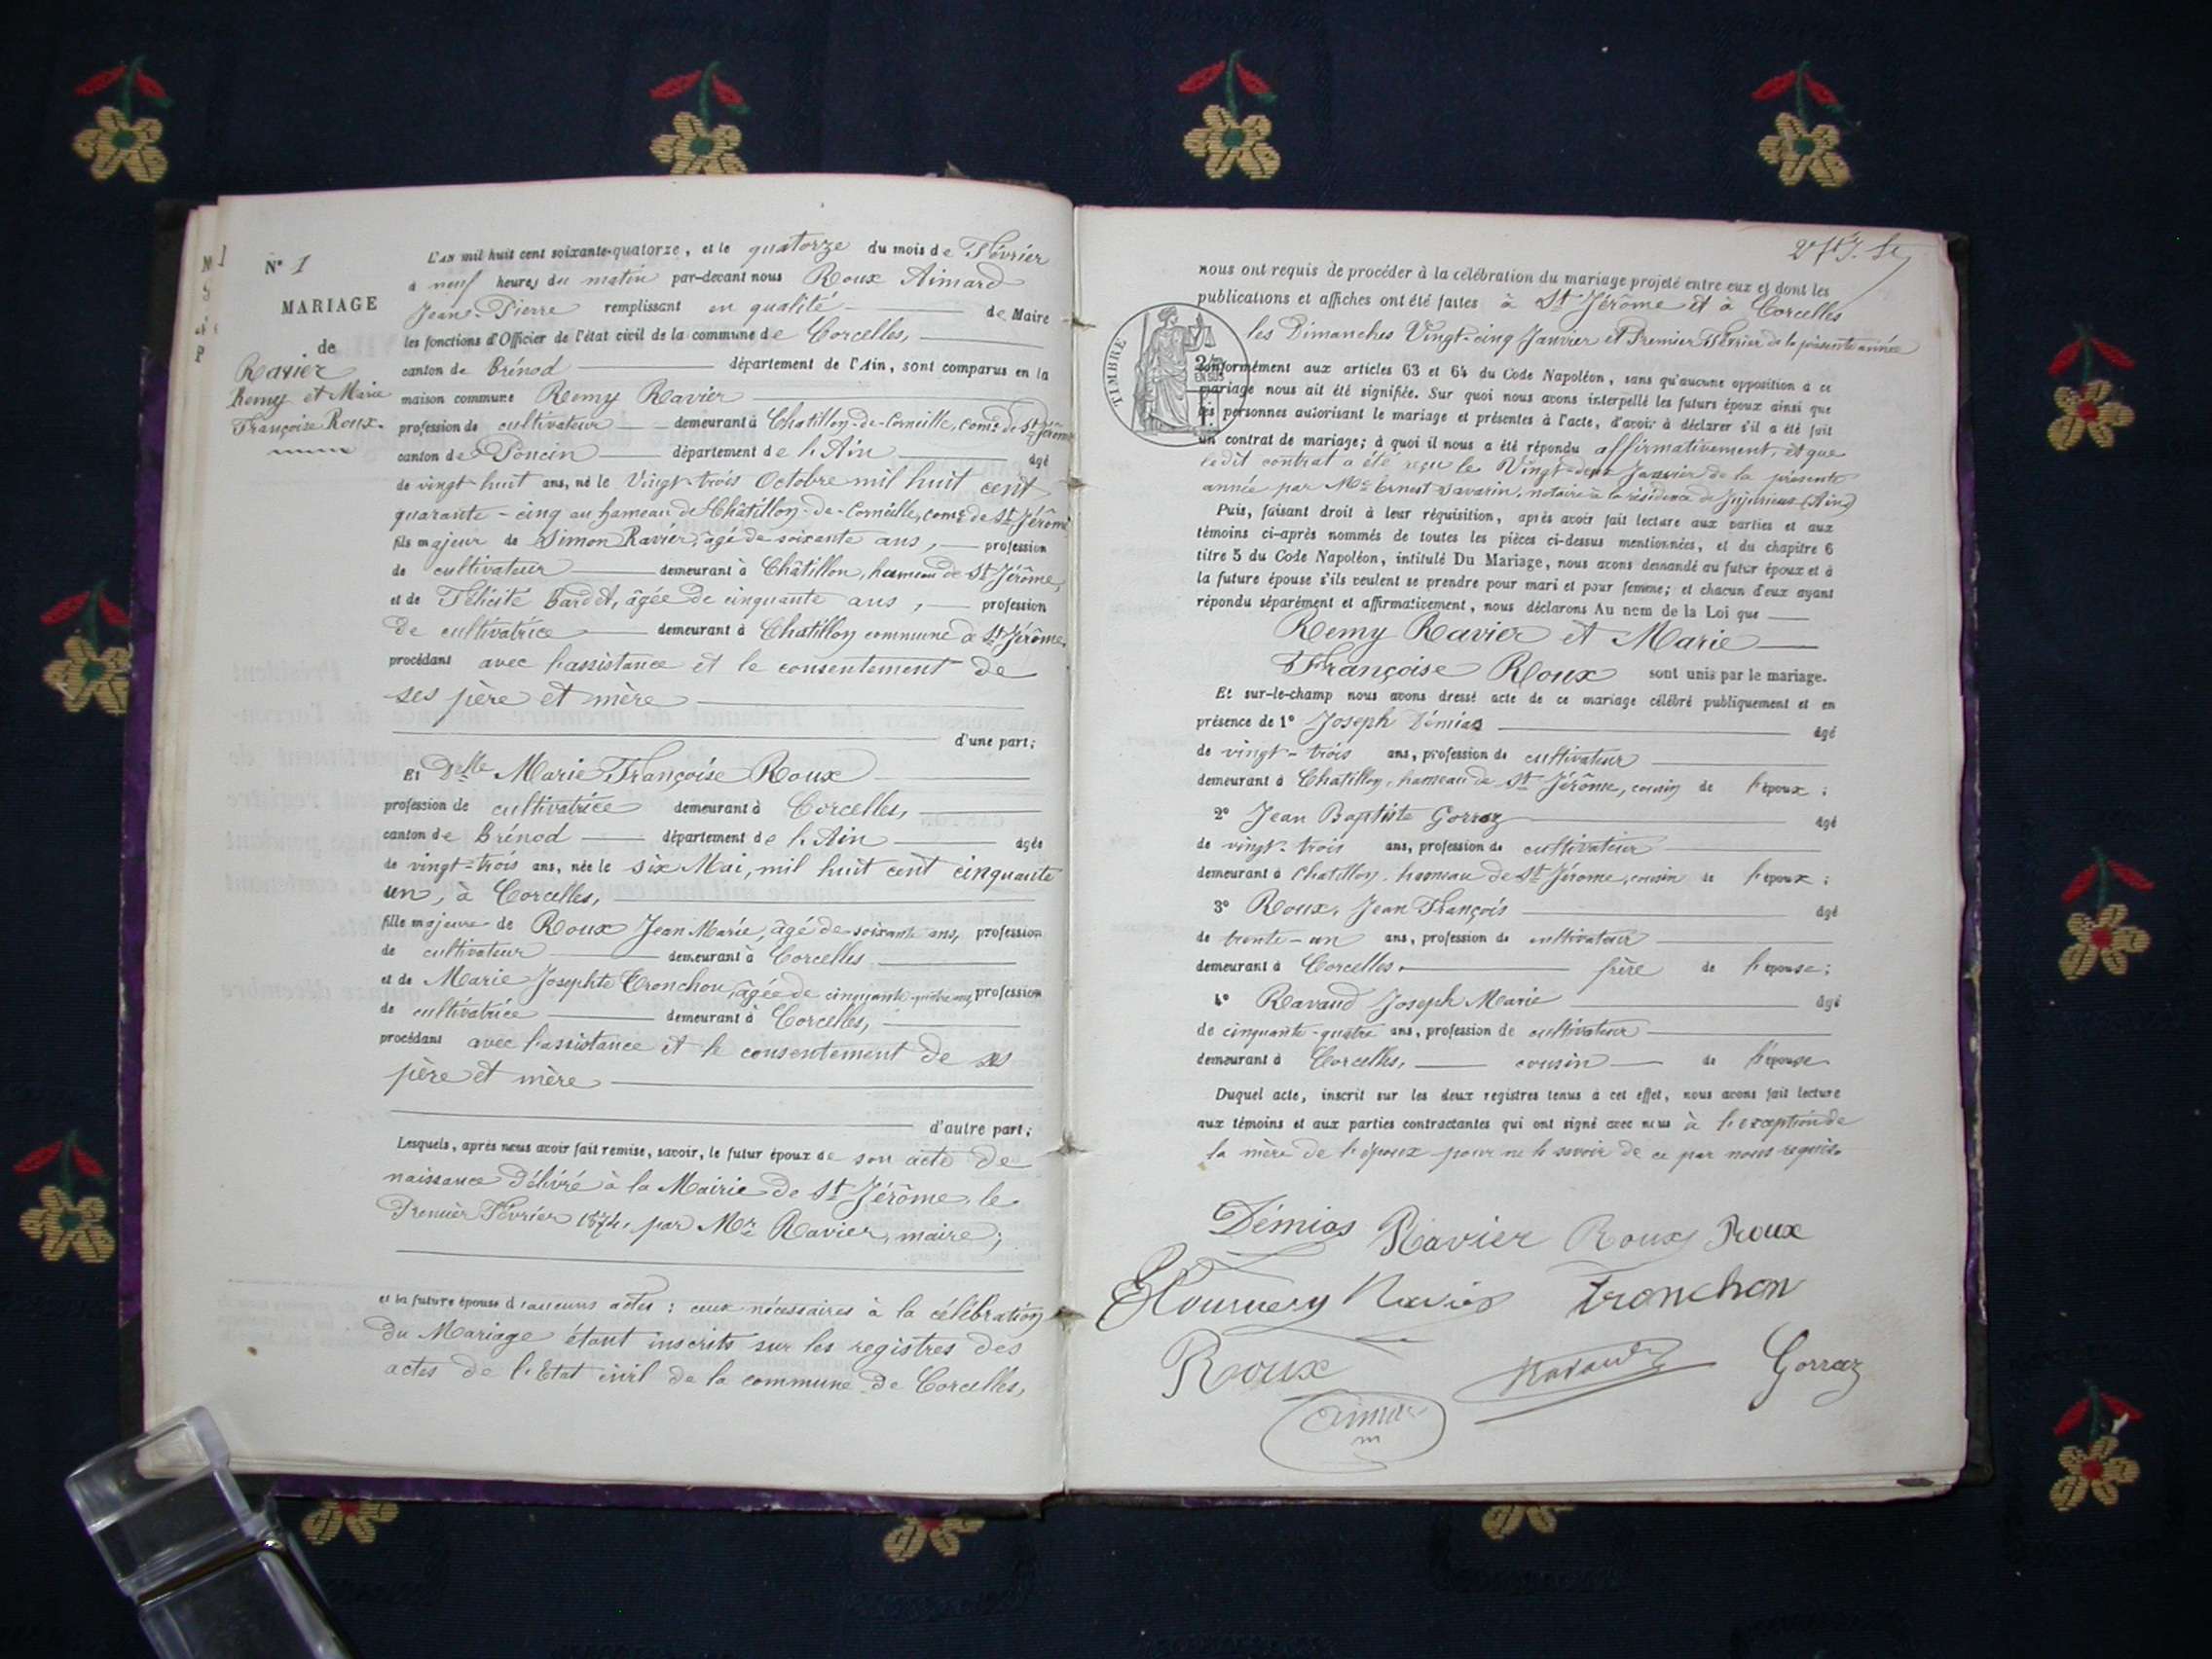 N° 1
MARIAGE
de
Ravier
Remy et Marie
Françoise Roux.
L'AN mil huit cent soixante-quatorze, et le quatorze du mois de Février
à neuf heures du matin par-devant nous Roux Aimard
Jean-Pierre remplissant en qualité de Maire
les fonctions d'Officier de l'état civil de la commune de Corcelles,
canton de Brénod département de l'Ain, sont comparus en la
maison commune Remy Ravier
profession de cultivateur demeurant à Chatillon-de-Corneille, com.ne de St Jérôme
canton de Poncin département de l'Ain âgé
de vingt huit ans, né le Vingt-trois Octobre mil huit cent
quarante-cinq au hameau de Châtillon-de-Corneille, com.ne de St Jérôme
fils majeur de Simon Ravier, âgé de soixante ans, profession
de cultivateur demeurant à Châtillon, hameau de St Jérôme,
et de Félicité Bardet, âgée de cinquante ans, profession
de cultivatrice demeurant à Chatillon commune de St Jérôme,
procédant avec l'assistance et le consentement de
ses père et mère
d'une part;
Et Delle Marie Françoise Roux
profession de cultivatrice demeurant à Corcelles,
canton de Brénod département de l'Ain âgée
de vingt-trois ans, née le six Mai, mil huit cent cinquante
un, à Corcelles,
fille majeure de Roux Jean Marie, âgé de soixante ans, profession
de cultivateur demeurant à Corcelles
et de Marie Josephte Tronchon, âgée de cinquante-quatre ans, profession
de cultivatrice demeurant à Corcelles,
procédant avec l'assistance et le consentement de ses
père et mère
d'autre part;
Lesquels, après nous avoir fait remise, savoir, le futur époux de son acte de
naissance délivré à la Mairie de St Jérôme, le
Premier Février 1874, par Mr Ravier, maire;
et la future épouse d'aucuns actes: ceux nécessaires à la célébration
du Mariage étant inscrits sur les registres des
actes de l'Etat civil de la commune de Corcelles,
nous ont requis de procéder à la célébration du mariage projeté entre eux et dont les
publications et affiches ont été faites à St Jérôme et à Corcelles
les Dimanches Vingt-cinq Janvier et Premier Février de la présente année
TIMBRE
conformément aux articles 63 et 64 du Code Napoléon, sans qu'aucune opposition à ce
mariage nous ait été signifiée. Sur quoi nous avons interpellé les futurs époux ainsi que
les personnes autorisant le mariage et présentes à l'acte, d'avoir à déclarer s'il a été fait
un contrat de mariage; à quoi il nous a été répondu affirmativement, et que
ledit contrat a été reçu le Vingt-deux Janvier de la présente
année par Me Ernest Savarin, notaire à la résidence de Jujurieux (Ain)
Puis, faisant droit à leur réquisition, après avoir fait lecture aux parties et aux
témoins ci-après nommés de toutes les pièces ci-dessus mentionnées, et du chapitre 6
titre 5 du Code Napoléon, intitulé Du Mariage, nous avons demandé au futur époux et à
la future épouse s'ils veulent se prendre pour mari et pour femme; et chacun d'eux ayant
répondu séparément et affirmativement, nous déclarons Au nom de la Loi que
Remy Ravier et Marie
Françoise Roux sont unis par le mariage.
Et sur-le-champ nous avons dressé acte de ce mariage célébré publiquement et en
présence de 1° Joseph Démias âgé
de vingt-trois ans, profession de cultivateur
demeurant à Chatillon, hameau de St Jérôme, cousin de l'époux;
2° Jean Baptiste Gorraz âgé
de vingt-trois ans, profession de cultivateur
demeurant à Chatillon, hameau de St Jérome, cousin de l'époux;
3° Roux, Jean François âgé
de trente-un ans, profession de cultivateur
demeurant à Corcelles, frère de l'épouse;
4° Ravaud Joseph Marie âgé
de cinquante-quatre ans, profession de cultivateur
demeurant à Corcelles, cousin de l'épouse
Duquel acte, inscrit sur les deux registres tenus à cet effet, nous avons fait lecture
aux témoins et aux parties contractantes qui ont signé avec nous à l'exception de
la mère de l'époux pour ne le savoir de ce par nous requise.
Démias Ravier Roux Roux
Ravier Tronchon
Roux Ravaud Gorraz